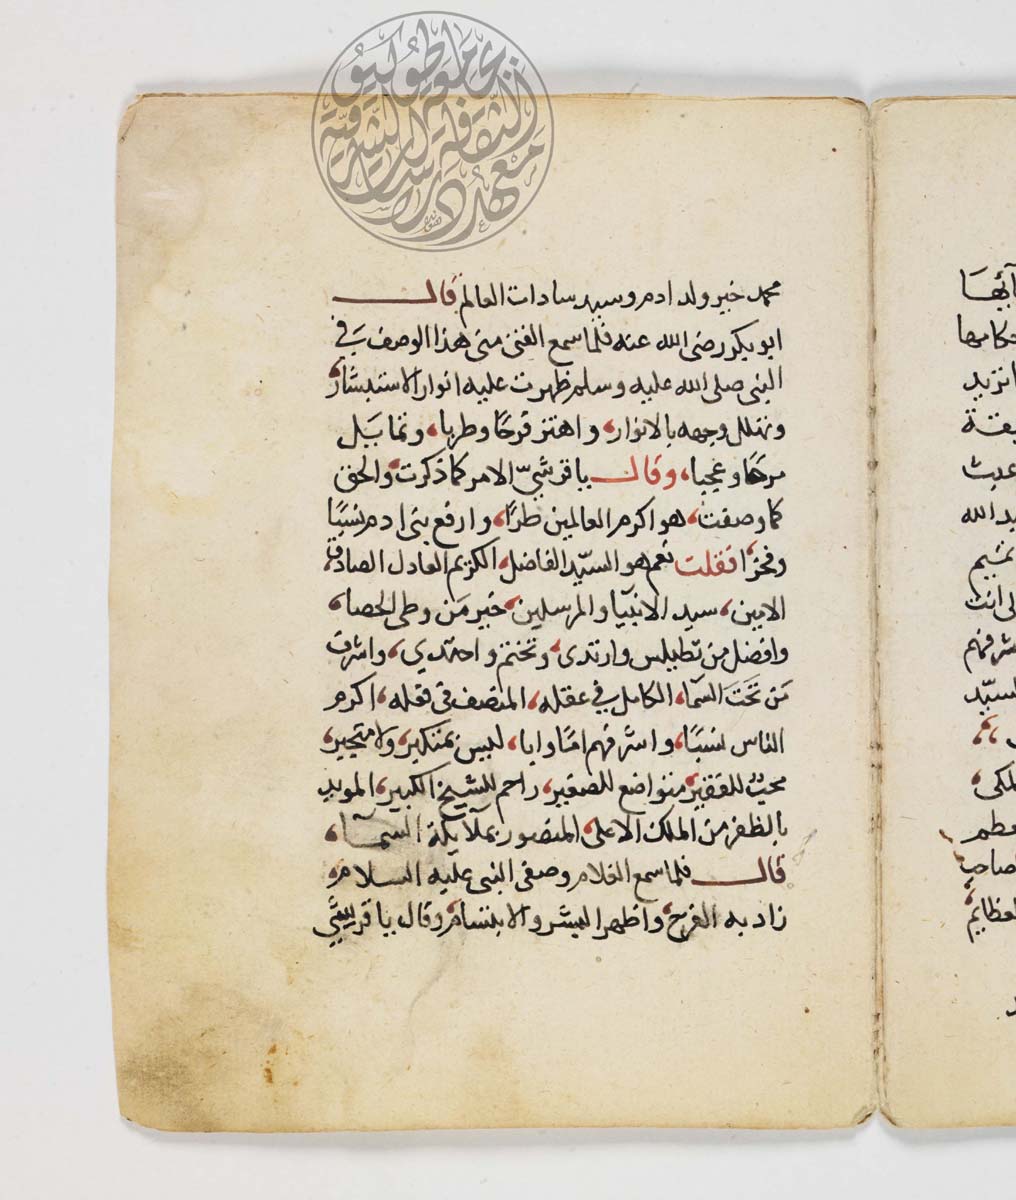 محمد خير ولد ادم وسيد سادات العالم قال
ابو بكر رضى الله عنه فلما سمع الفتى منى هذا الوصف في
النبى صلى الله عليه وسلم ظهرت عليه انوار الاستبشار،
وتهلل وجهه بالانوار، واهتز فرحًا وطربا، وتمايل
مرحًا وعجبا، وقال يا قرشيّ الامر كما ذكرت، والحق
كما وصفت، هو اكرم العالمين طرًا، وارفع بنى ادم نسبًا
وفخرًا، فقلت نعم هو السيّد الفاضل، الكريم العادل الصادق،
الامين، سيد الانبيا والمرسلين، خير مَن وطى الحصا،
وافضل من تطيلس وارتدى، وتختم واحتدي، واشرف
مَن تَحتَ السمآ، الكامل في عقله، المنصف في فعله، اكرم
الناس نسبًا، واشرفهم امًا وابا، ليس بمتكبر، ولا متجبر،
محبٌ للفقير، متواضع للصغير، راحم للشيخ الكبير، المويد
بالظفر من الملك الاعلى، المنصور بملايكة السمآ،
قال فلما سمع الغلام وصفى النبى عليه السلام،
زاد به الفرح، واظهر البشر والابتسام، وقال يا قريشي